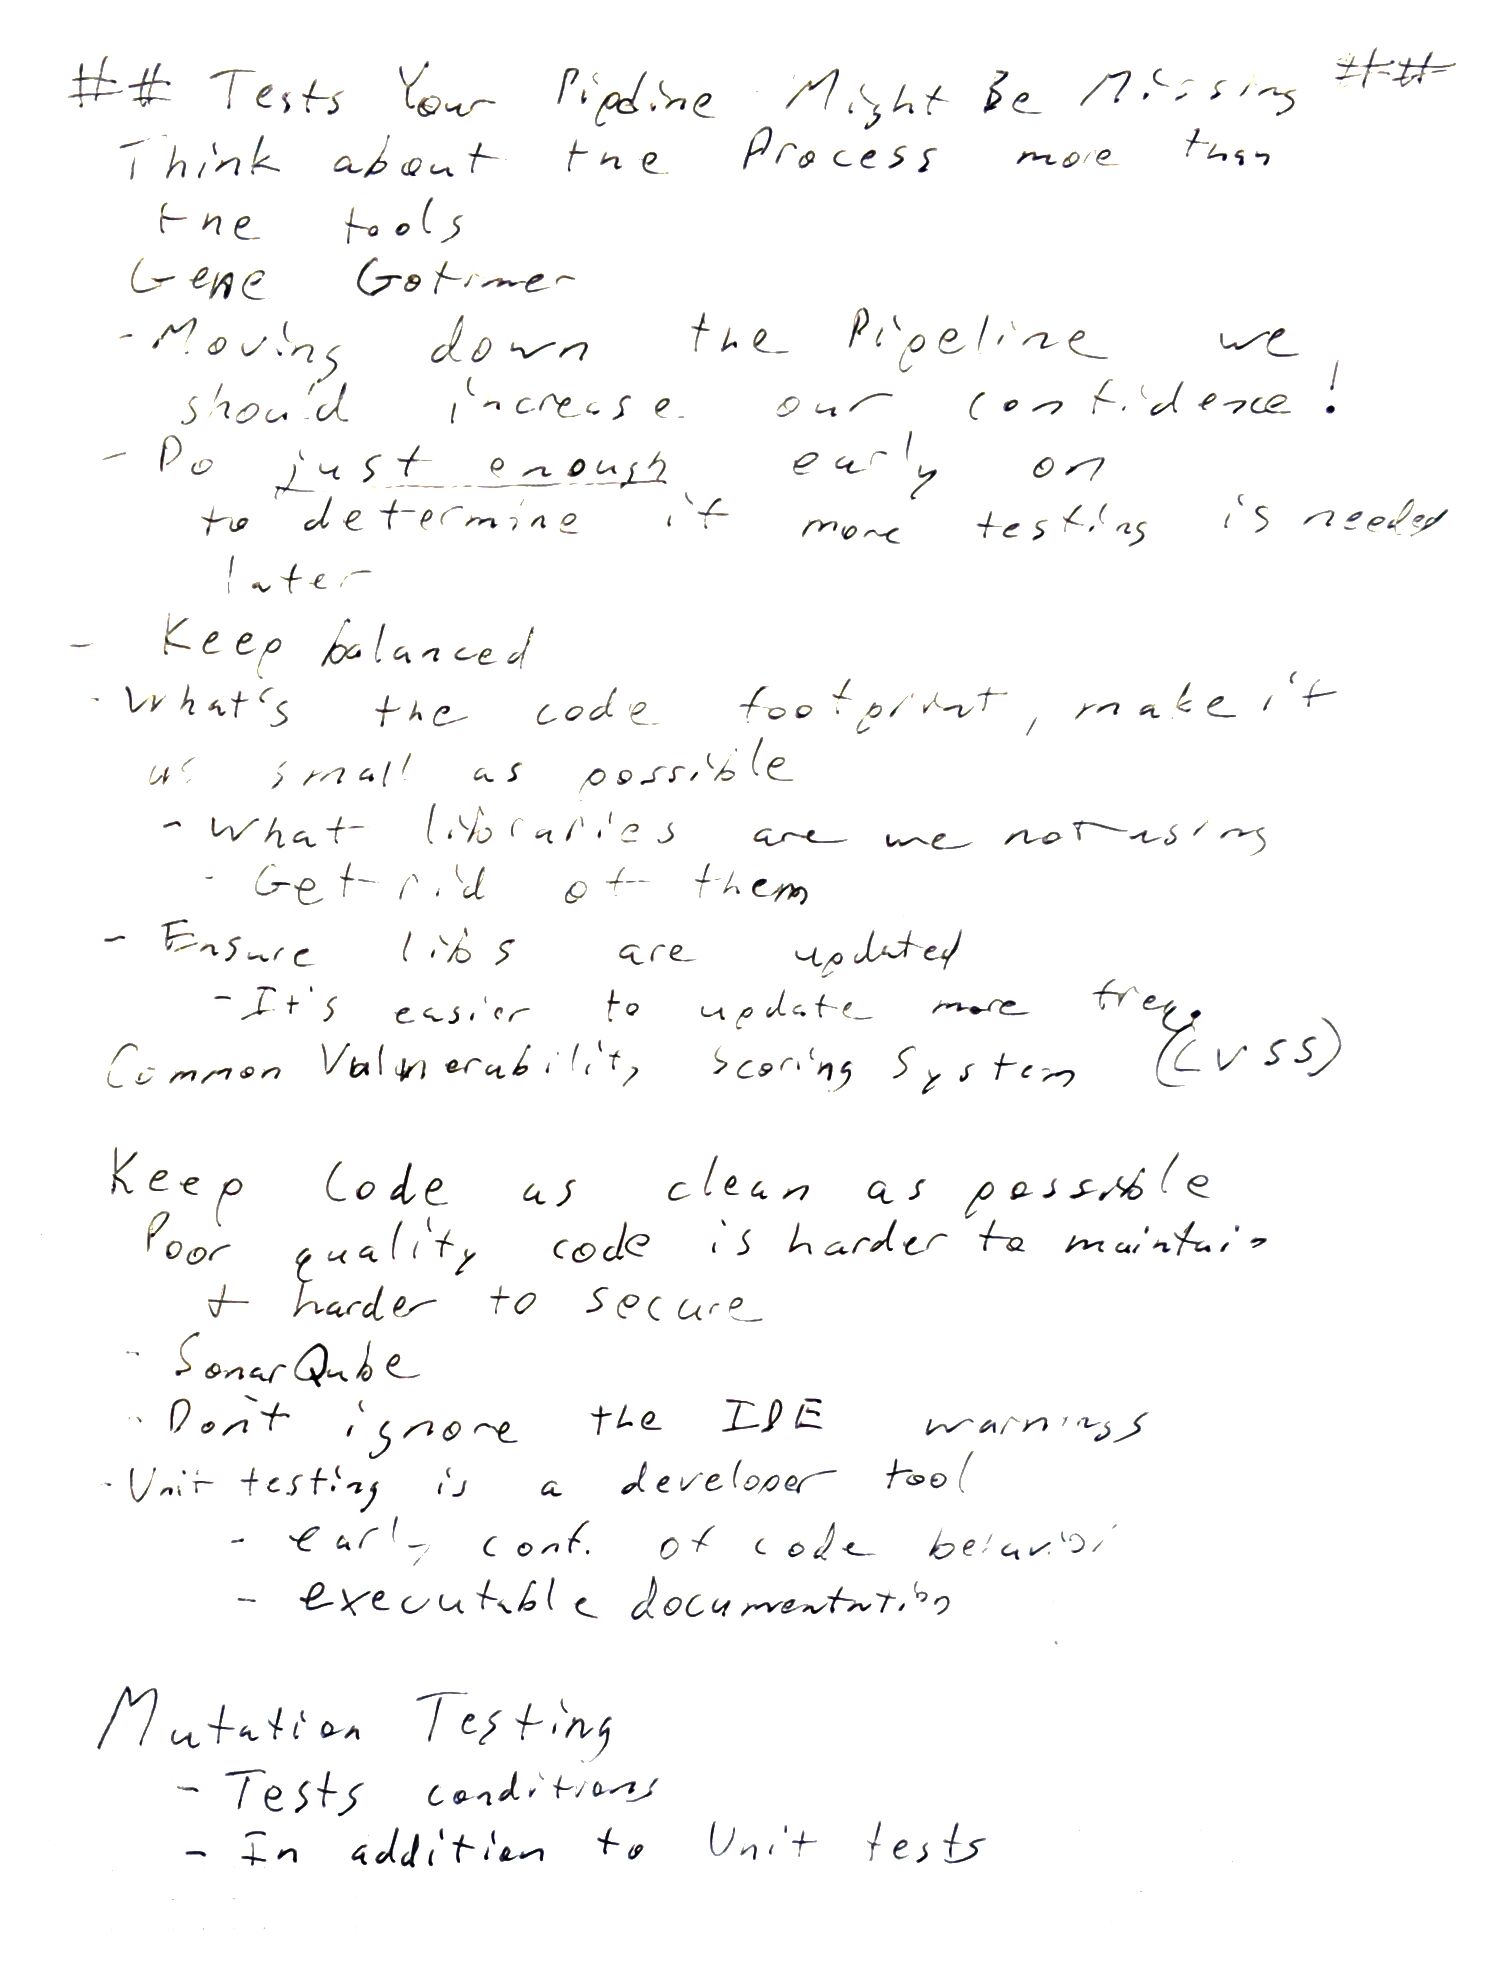 ## Tests Your Pipeline Might Be Missing ##
Think about the Process more than
the tools
Gene Gotimer
- Moving down the Pipeline we
should increase our confidence!
- Do just enough early on
to determine if more testing is needed
later
- Keep balanced
- What's the code footprint, make it
as small as possible
- What libraries are we not using
- Get rid of them
- Ensure libs are updated
- It's easier to update more freq.
Common Vulnerability Scoring System (CVSS)
Keep Code as clean as possible
Poor quality code is harder to maintain
+ harder to secure
- SonarQube
- Don't ignore the IDE warnings
- Unit testing is a developer tool
- early conf. of code behavior
- executable documentation
Mutation Testing
- Tests conditions
- In addition to Unit tests